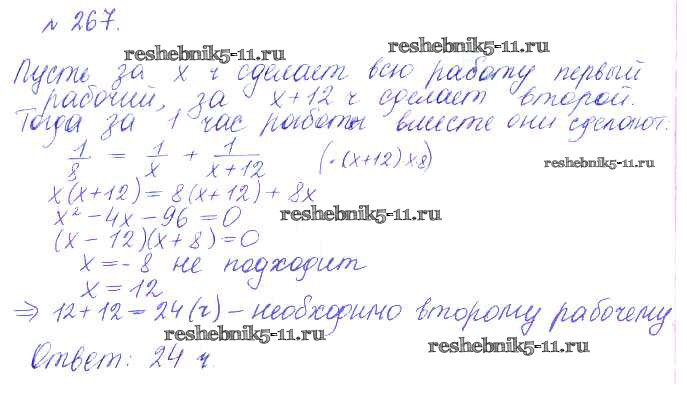 № 267.
reshebnik5-11.ru
reshebnik5-11.ru
Пусть за x ч сделает всю работу первый
рабочий, за x+12 ч сделает второй.
Тогда за 1 час работы вместе они сделают:
1/8 = 1/x + 1/(x+12) (·(x+12)x8)
reshebnik5-11.ru
x(x+12) = 8(x+12) + 8x
x² - 4x - 96 = 0
reshebnik5-11.ru
(x - 12)(x + 8) = 0
x = -8 не подходит
x = 12
⇒ 12+12 = 24 (ч) - необходимо второму рабочему
reshebnik5-11.ru
reshebnik5-11.ru
Ответ: 24 ч.